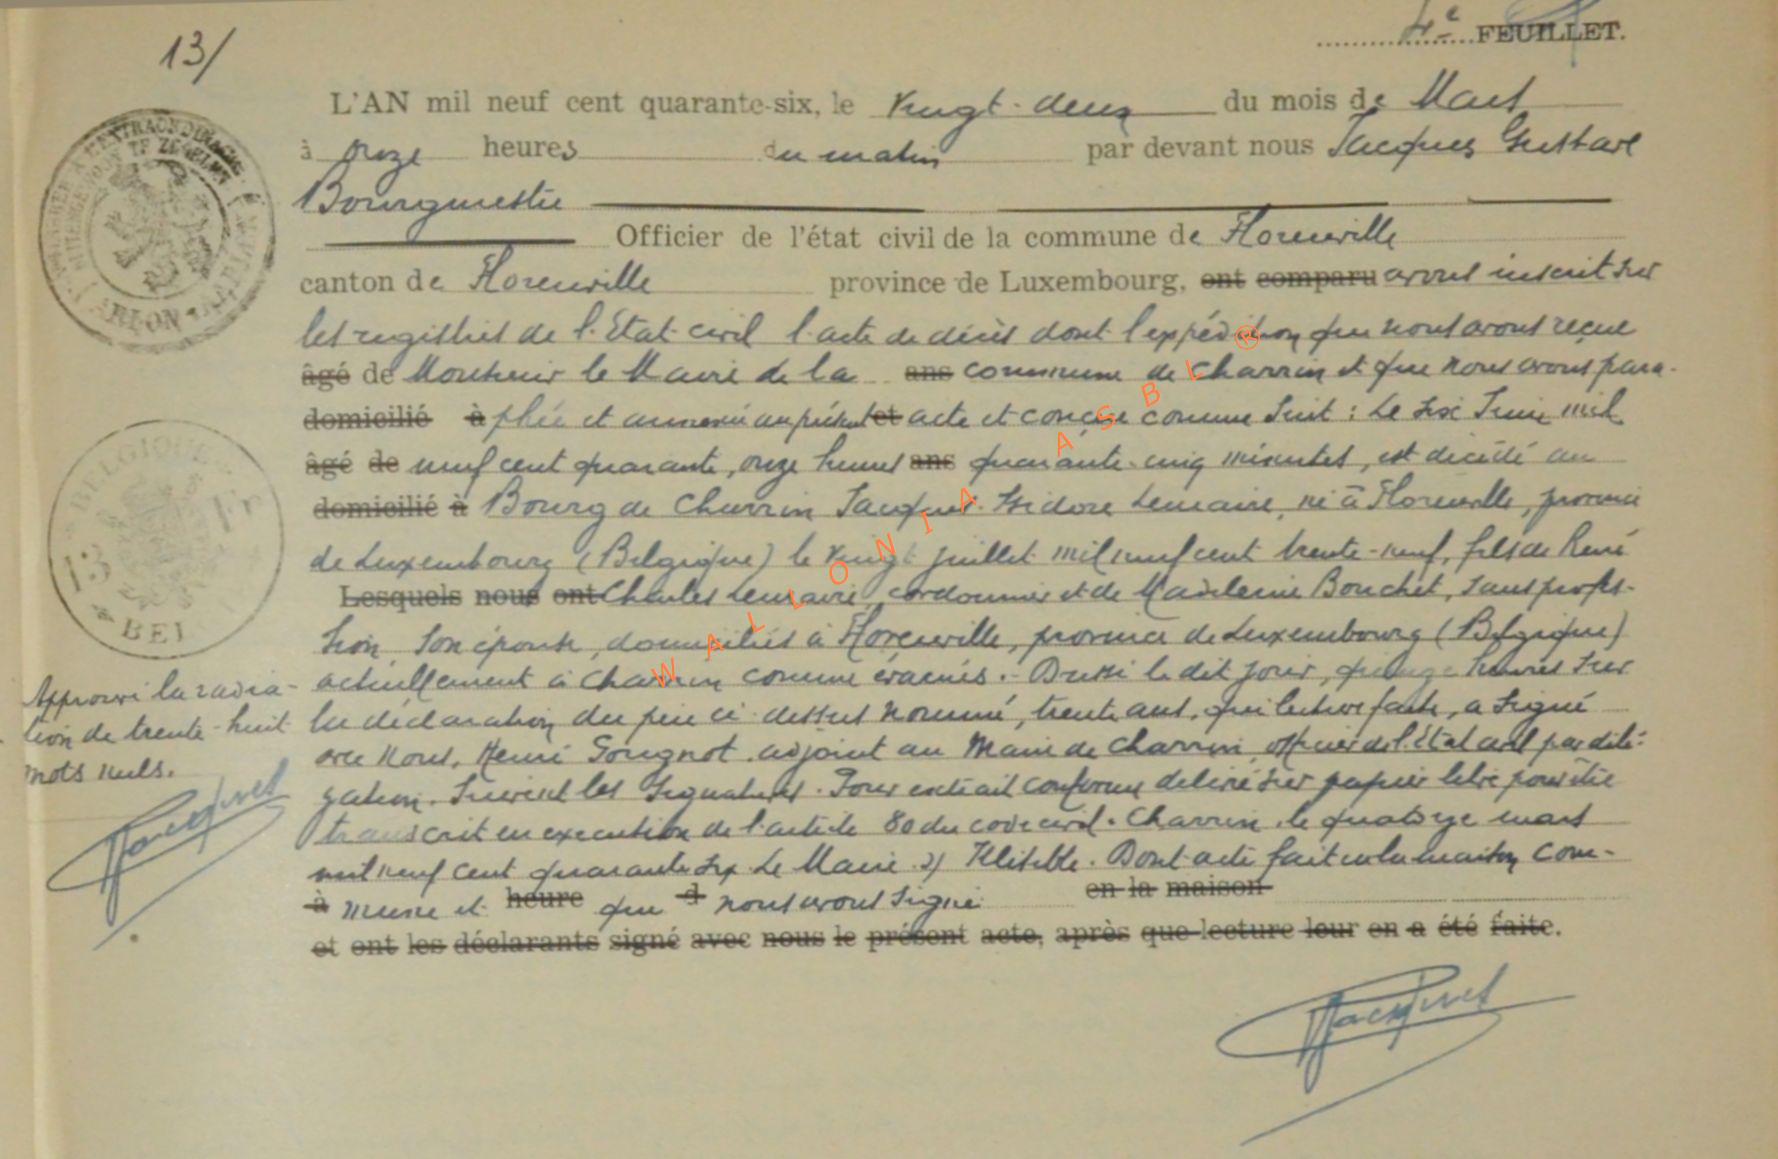 4e FEUILLET.
13/
L'AN mil neuf cent quarante-six, le vingt-deux du mois de Mars
à onze heures du matin par devant nous Jacques Gustave
Bourgmestre
Officier de l'état civil de la commune de Florenville
canton de Florenville province de Luxembourg, ont comparu avons inscrit sur
les registres de l'Etat civil l'acte de décès dont l'expédition que nous avons reçue
âgé de Monsieur le Maire de la ans commune de Charrin et que nous avons para-
domicilié à phée et annexée au présent et acte et conçue comme suit : Le six Juin mil
âgé de neuf cent quarante, onze heures ans quarante-cinq minutes, est décédé au
domicilié à Bourg de Charrin Jacques Isidore Lemaire, né à Florenville, province
de Luxembourg (Belgique) le vingt juillet mil neuf cent trente-neuf, fils de René
Lesquels nous ont Charles Lemaire, cordonnier et de Madeleine Bouchet, sans profes-
sion, son épouse, domiciliés à Florenville, province de Luxembourg (Belgique)
actuellement à Charrin comme évacués. - Dressé le dit jour, quinze heures sur
la déclaration du père ci-dessus nommé, trente ans, qui lecture faite, a signé
avec Nous, Henri Gougnot adjoint au Maire de Charrin, officier de l'Etat civil par délé-
gation. Suivent les signatures. Pour extrait conforme délivré sur papier libre pour être
transcrit en exécution de l'article 80 du code civil. Charrin, le quatorze mars
mil neuf cent quarante six Le Maire s) Illisible. Dont acte fait en la maison com-
à mune et heure que d nous avons signé en la maison
et ont les déclarants signé avec nous le présent acte, après que lecture leur en a été faite.
Approuvé la radia-
tion de trente-huit
mots nuls.
Jacques
Jacques
BELGIQUE
13 Fr
BEL
ARLON
WALLONIA ASBL ®